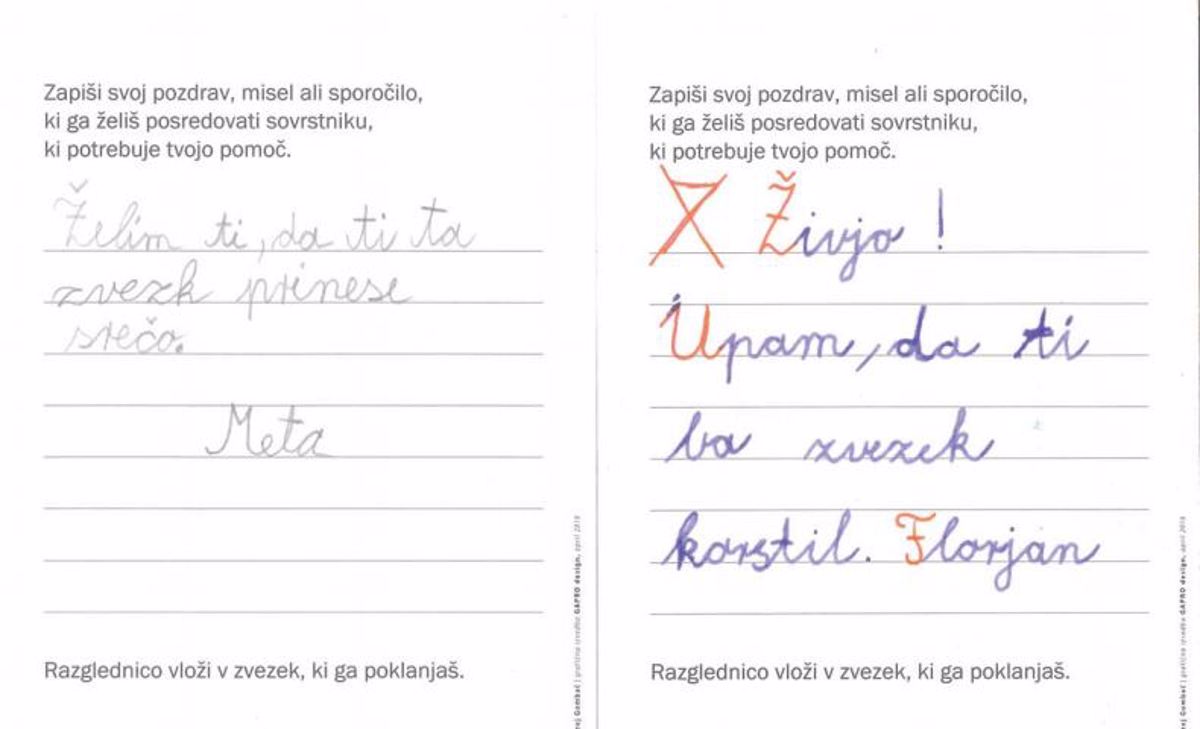 Zapiši svoj pozdrav, misel ali sporočilo,
ki ga želiš posredovati sovrstniku,
ki potrebuje tvojo pomoč.
Želim ti, da ti ta
zvezk prinese
srečo.
Meta
Razglednico vloži v zvezek, ki ga poklanjaš.
Zapiši svoj pozdrav, misel ali sporočilo,
ki ga želiš posredovati sovrstniku,
ki potrebuje tvojo pomoč.
Živjo!
Upam, da ti
bo zvezek
korstil. Florjan
Razglednico vloži v zvezek, ki ga poklanjaš.
GAPRO design, april 2010
GAPRO design, april 2010